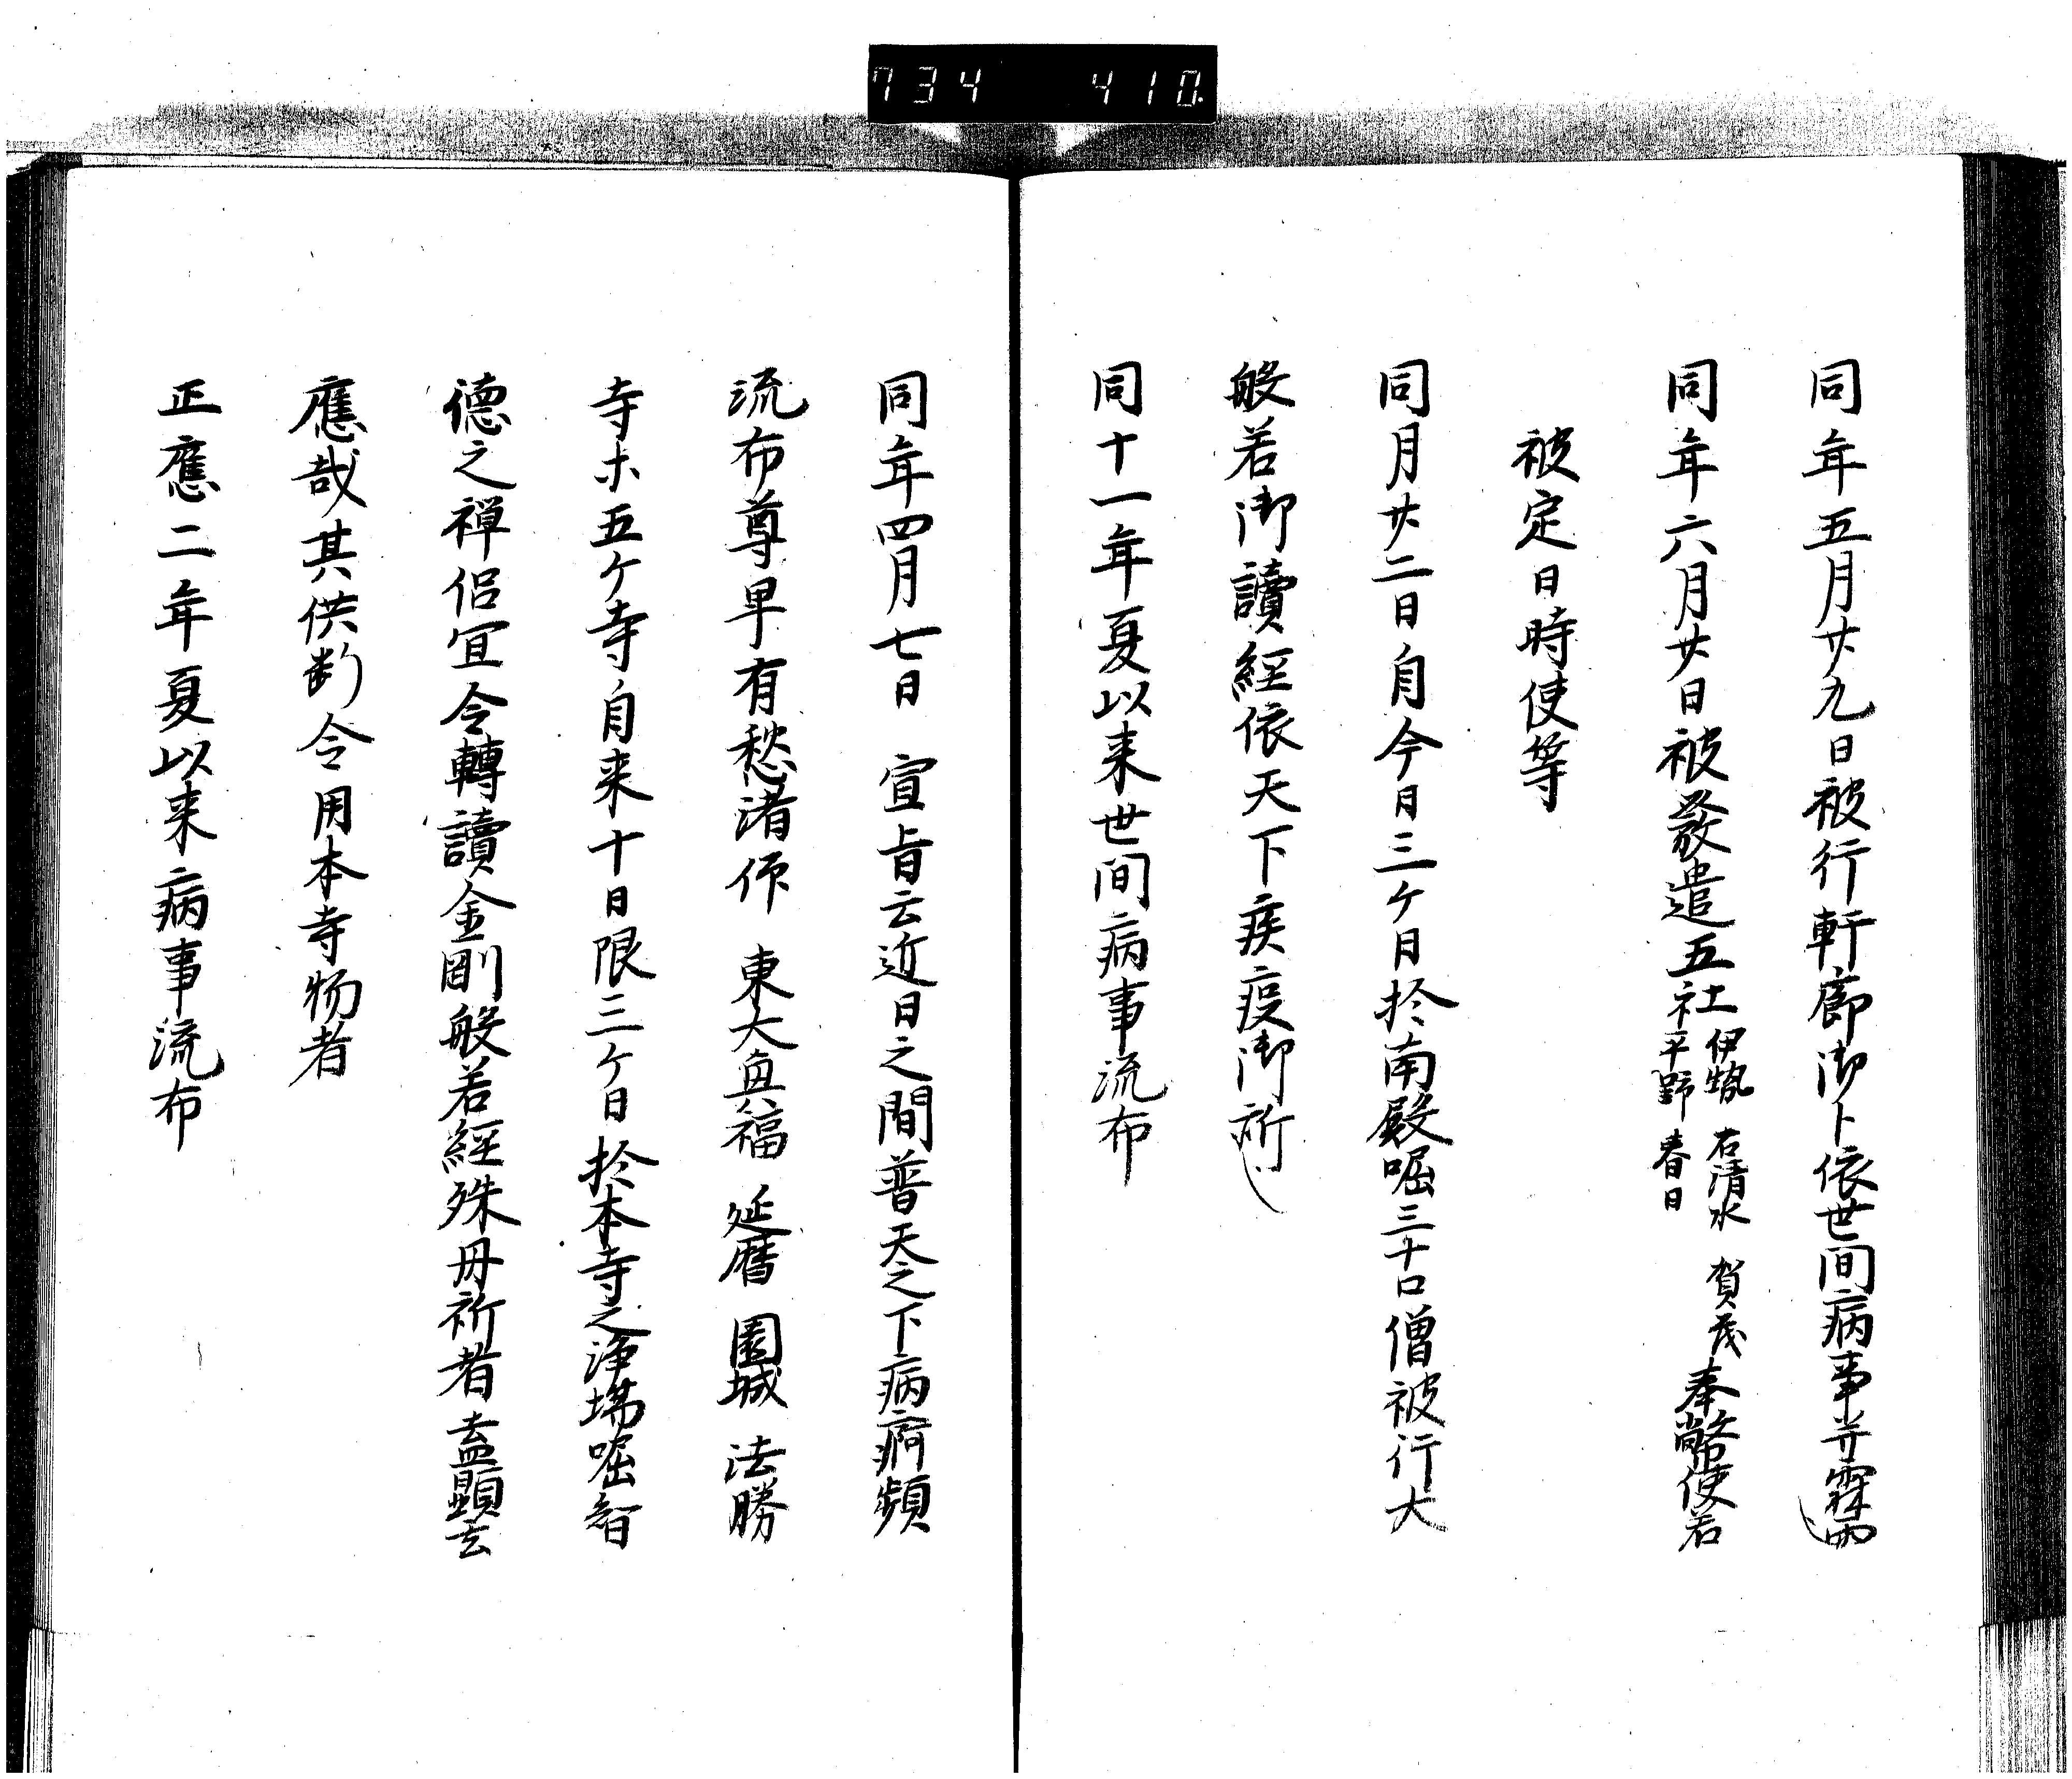 734 410.
同年五月廿九日被行軒廊御卜依世間病事并霖雨
同年六月廿日被發遣五社伊勢 石清水 賀茂 平野 春日奉幣使若
被定日時使等
同月廿二日自今月三ケ月於南殿啒三十口僧被行大
般若御讀經依天下疾疫御祈
同十一年夏以来世間病事流布
同年四月七日 宣旨云近日之間普天之下病痾頻
流布尊卑有愁渚 東大興福 延暦 園城 法勝
寺木五ケ寺自来十日限三ケ日於本寺之浄場啒智
德之禅侶宜令轉讀金剛般若經殊毋祈者盍顕玄
應哉其供料令用本寺物者
正應二年夏以来病事流布